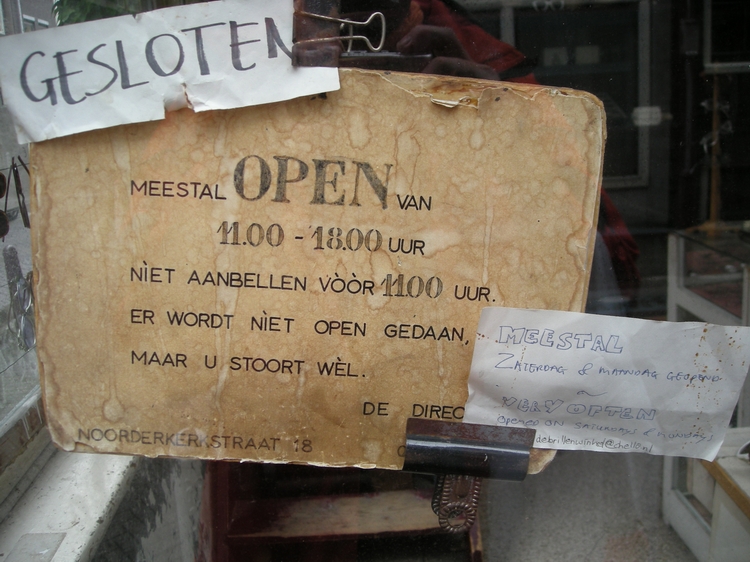 GESLOTEN
MEESTAL OPEN VAN
11.00 - 18.00 UUR
NIET AANBELLEN VÒÒR 11.00 UUR.
ER WORDT NIET OPEN GEDAAN,
MAAR U STOORT WÈL.
DE DIREC
NOORDERKERKSTRAAT 18
MEESTAL
ZATERDAG & MAANDAG GEOPEND
~
VERY OFTEN
OPENED ON SATURDAYS & MONDAYS